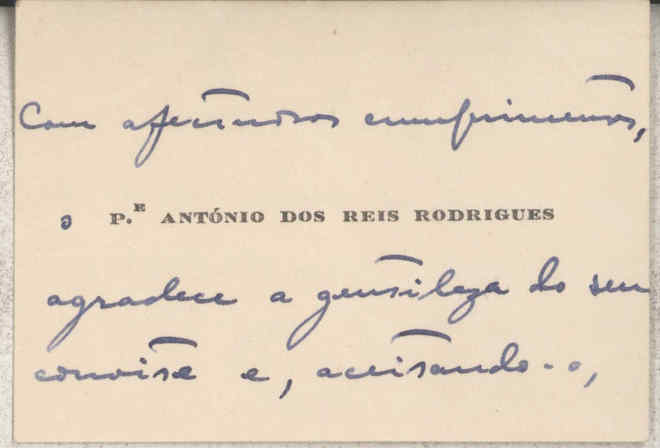 Com afectuosos cumprimentos,
o P.E ANTÓNIO DOS REIS RODRIGUES
agradece a gentileza do seu
convite e, aceitando-o,